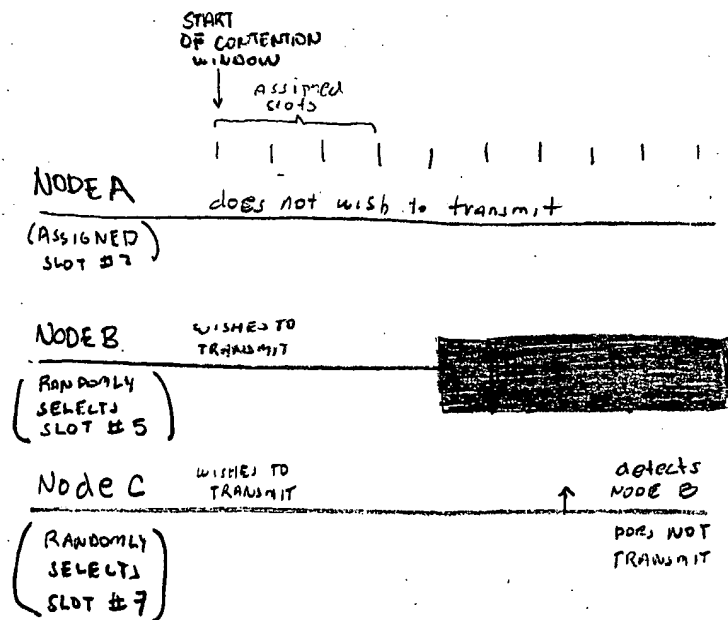 START
OF CONTENTION
WINDOW
Assigned
slots
NODE A
does not wish to transmit
(ASSIGNED
SLOT #
NODE B
WISHES TO
TRANSMIT
(RANDOMLY
SELECTS
SLOT # 5)
Node C
WISHES TO
TRANSMIT
detects
NODE B
DOES NOT
TRANSMIT
(RANDOMLY
SELECTS
SLOT # 7)